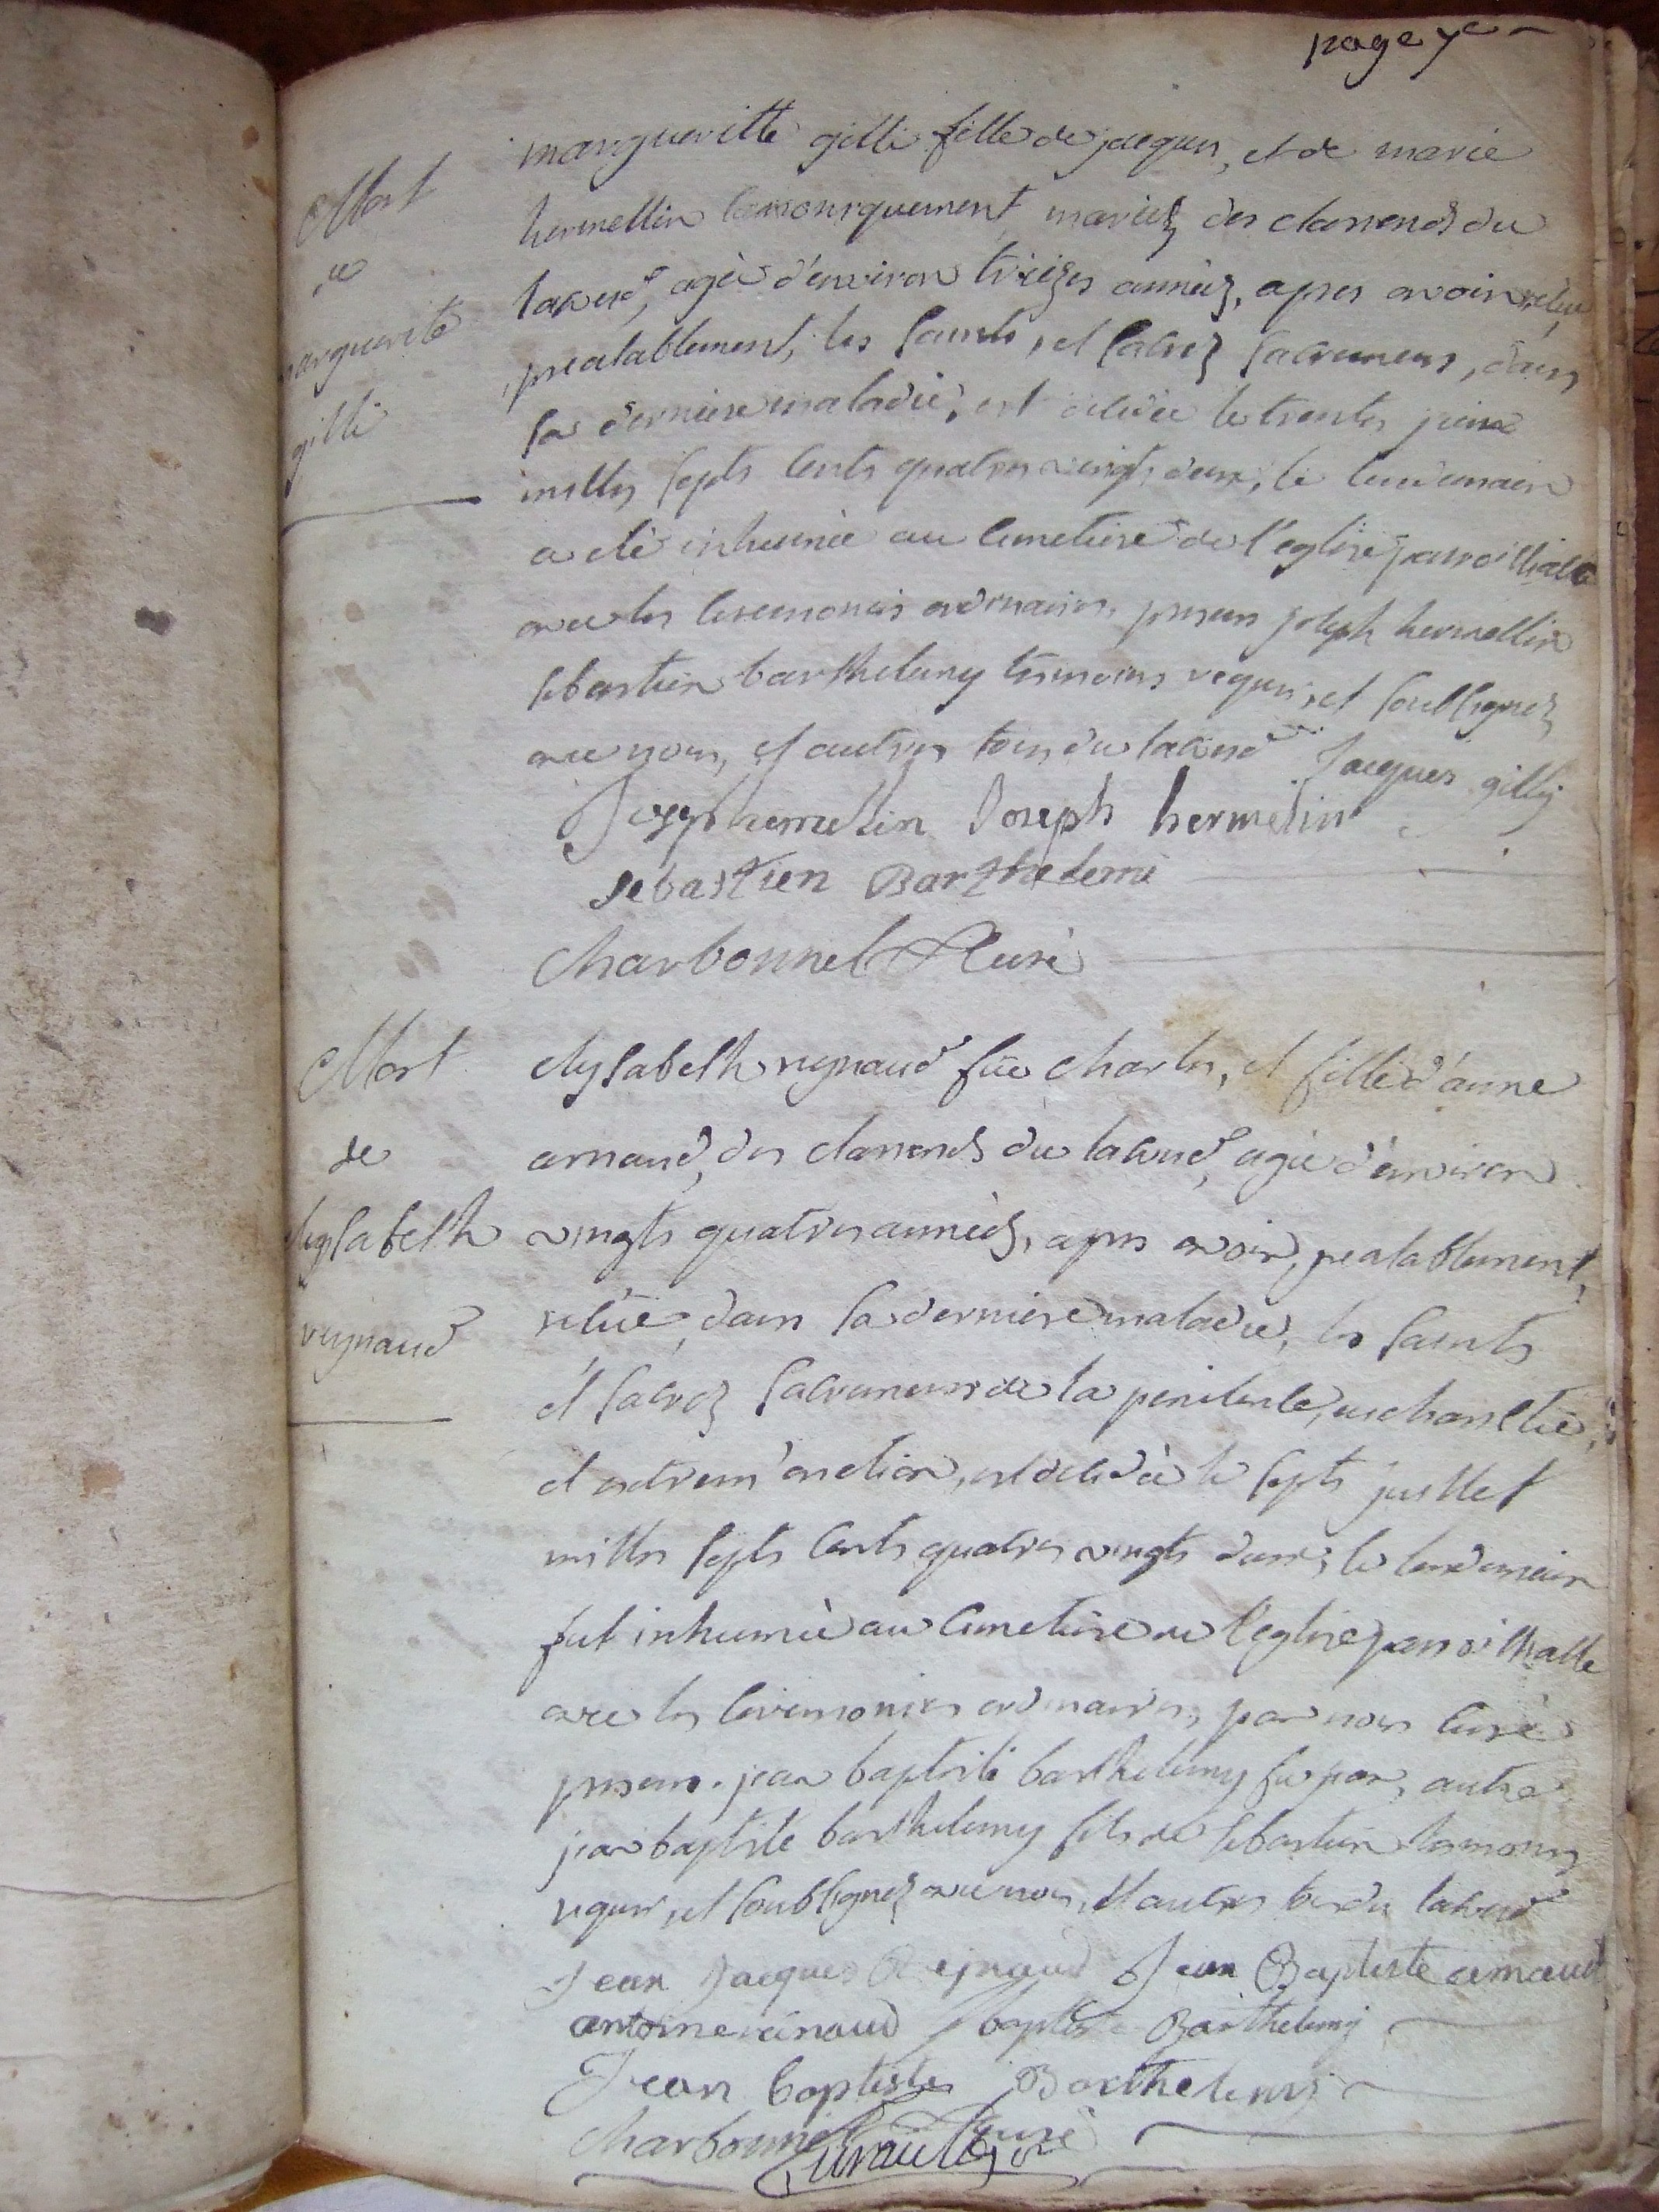 page 7e
Mort
de
marguerite
gilli
margueritte gilli fille de jacques, et de marie
hermellin mariés des clarionds du
laverd, agée d'environ treizes années, apres avoir reçu
prealablement, les saints, et sacrez sacremens, dans
sa derniere maladie, est decedée le trentes juin
milles septs cents quatres vingts deux, le lendemain
a eté inhumée au cimetiere de l'eglise parroissialle
avec les ceremonies ordinaires, presens joseph hermellin
sebastien barthelemy temoins requis, et soussignez
avec nous, et autres tous du laverd Jacques gilly
Joseph hermelin Joseph hermelin
sebastien Barthelemi
Charbonnel Curé
Mort
de
elysabeth
reynaud
elysabeth reynaud feu charles, et fille d'anne
arnaud, des clarionds du laverd, agée d'environ
vingts quatres années, apres avoir, prealablement,
reçüe, dans sa derniere maladie, les saints
et sacrez sacremens de la penitence, eucharistie,
et extrem'onction, est decedée le septs juillet
milles septs cents quatres vingts deux, le lendemain
fut inhumée au cimetiere de l'eglise parroissialle
avec les ceremonies ordinaires, par nous curé
presens. jean baptiste barthelemy feu jean, autre
jean baptiste barthelemy fils de sebastien temoins
requis, et soussignez avec nous, et autres tous du laverd
Jean Jacques Rejnaud Jean Baptiste arnaud
antoine reinaud J baptiste Barthelemy
Jean baptiste Barthelemy
Charbonnel Curé